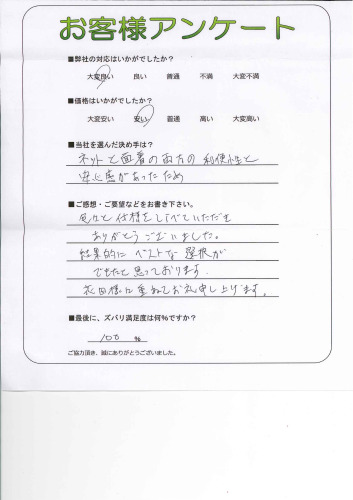 お客様アンケート
■弊社の対応はいかがでしたか?
大変良い 良い 普通 不満 大変不満
■価格はいかがでしたか?
大変安い 安い 普通 高い 大変高い
■当社を選んだ決め手は?
ネットと面着の両方の利便性と
安心感があったため
■ご感想・ご要望などをお書き下さい。
色々と仕様をしていただき
ありがとうございました。
結果的にベストな選択が
できたと思っております。
様に重ねてお礼申し上げます。
■最後に、ズバリ満足度は何%ですか?
100 %
ご協力頂き、誠にありがとうございました。